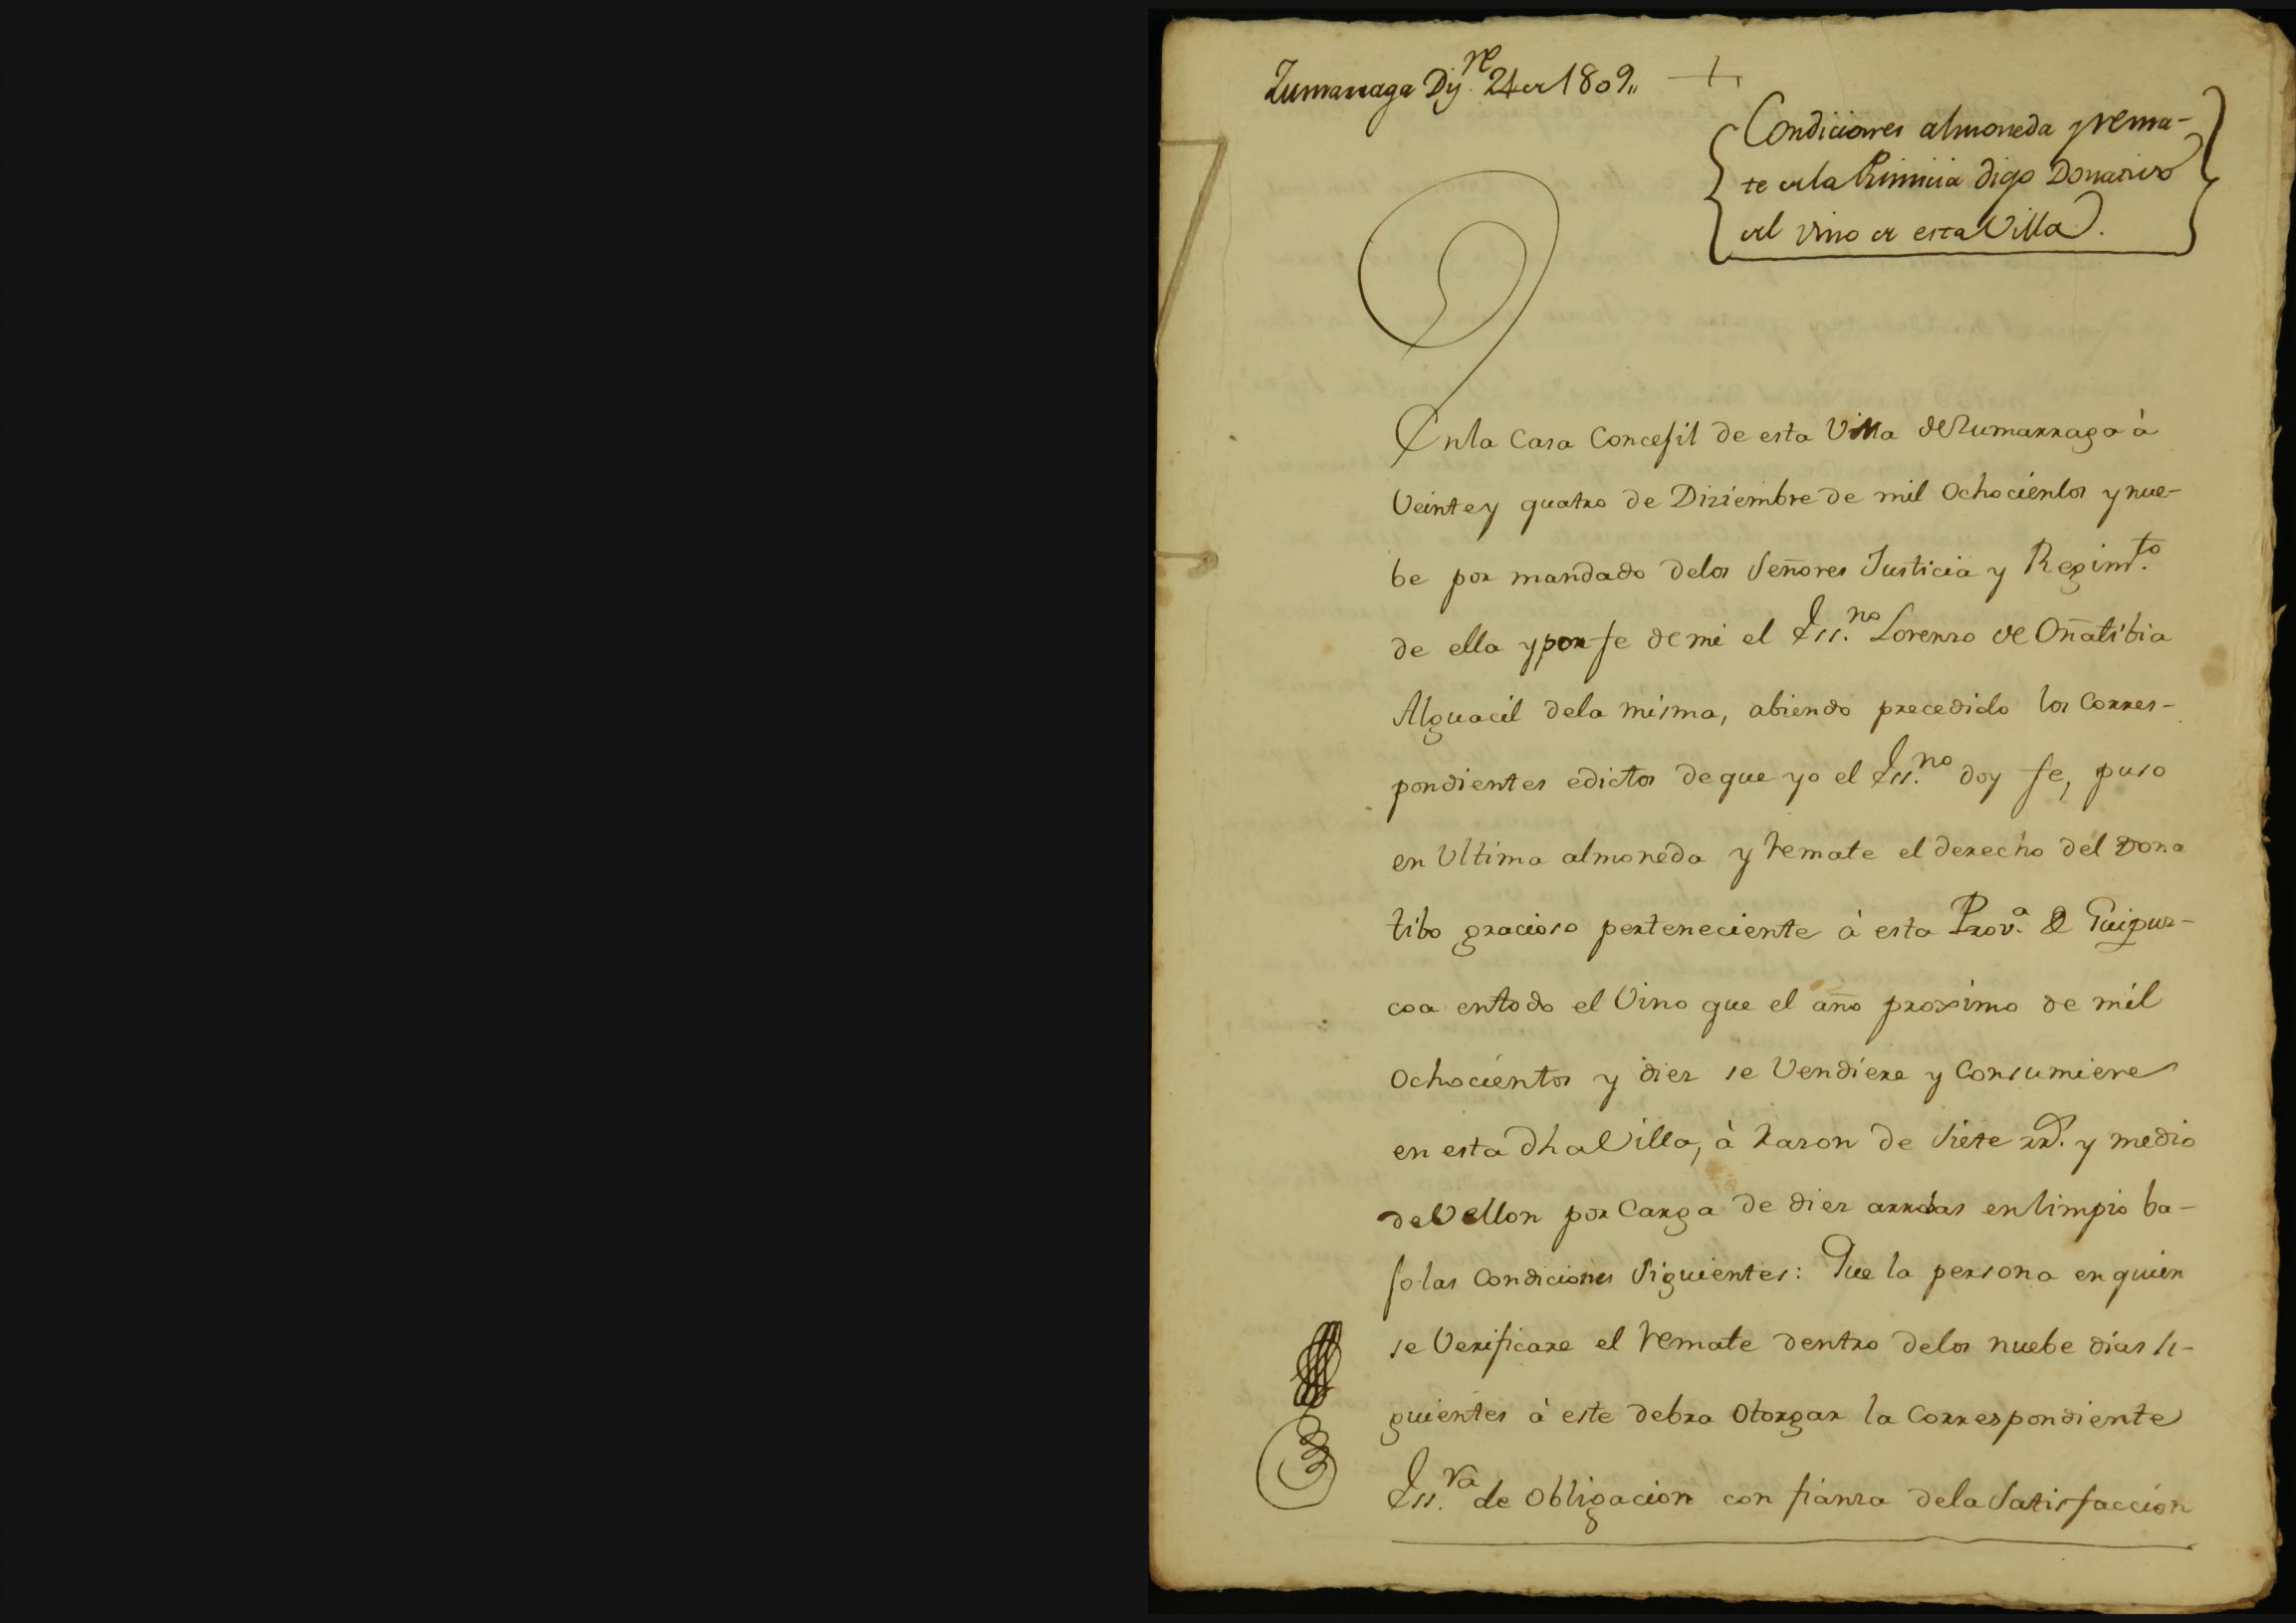 Zumarraga Dij.re 24 de 1809,,
Condiciones almoneda y rema-
te de la Primicia digo Donativo
del vino de esta Villa.
En la Casa Concejil de esta Villa de Zumarraga à
Veinte y quatro de Diziembre de mil Ochocientos y nue-
be por mandado delos Señores Justicia y Regim.to
de ella y por fe de mi el Ess.no Lorenzo de Oñatibia
Alguacil dela misma, abiendo precedido los Corres-
pondientes edictos de que yo el Ess.no doy fe, puso
en Ultima almoneda y remate el derecho del Dona
tibo gracioso perteneciente à esta Prov.a de Guipuz-
coa entodo el Vino que el año proximo de mil
Ochocientos y diez se Vendiere y Consumiere
en esta dha Villa, à razon de Siete rr.s y medio
de Vellon por Carga de diez arrobas en limpio ba-
jo las Condiciones Siguientes: Que la persona en quien
se Verificare el remate dentro delos nuebe dias si-
guientes à este debra Otorgar la Correspondiente
Ess.ra de Obligacion con fianza dela Satisfaccion